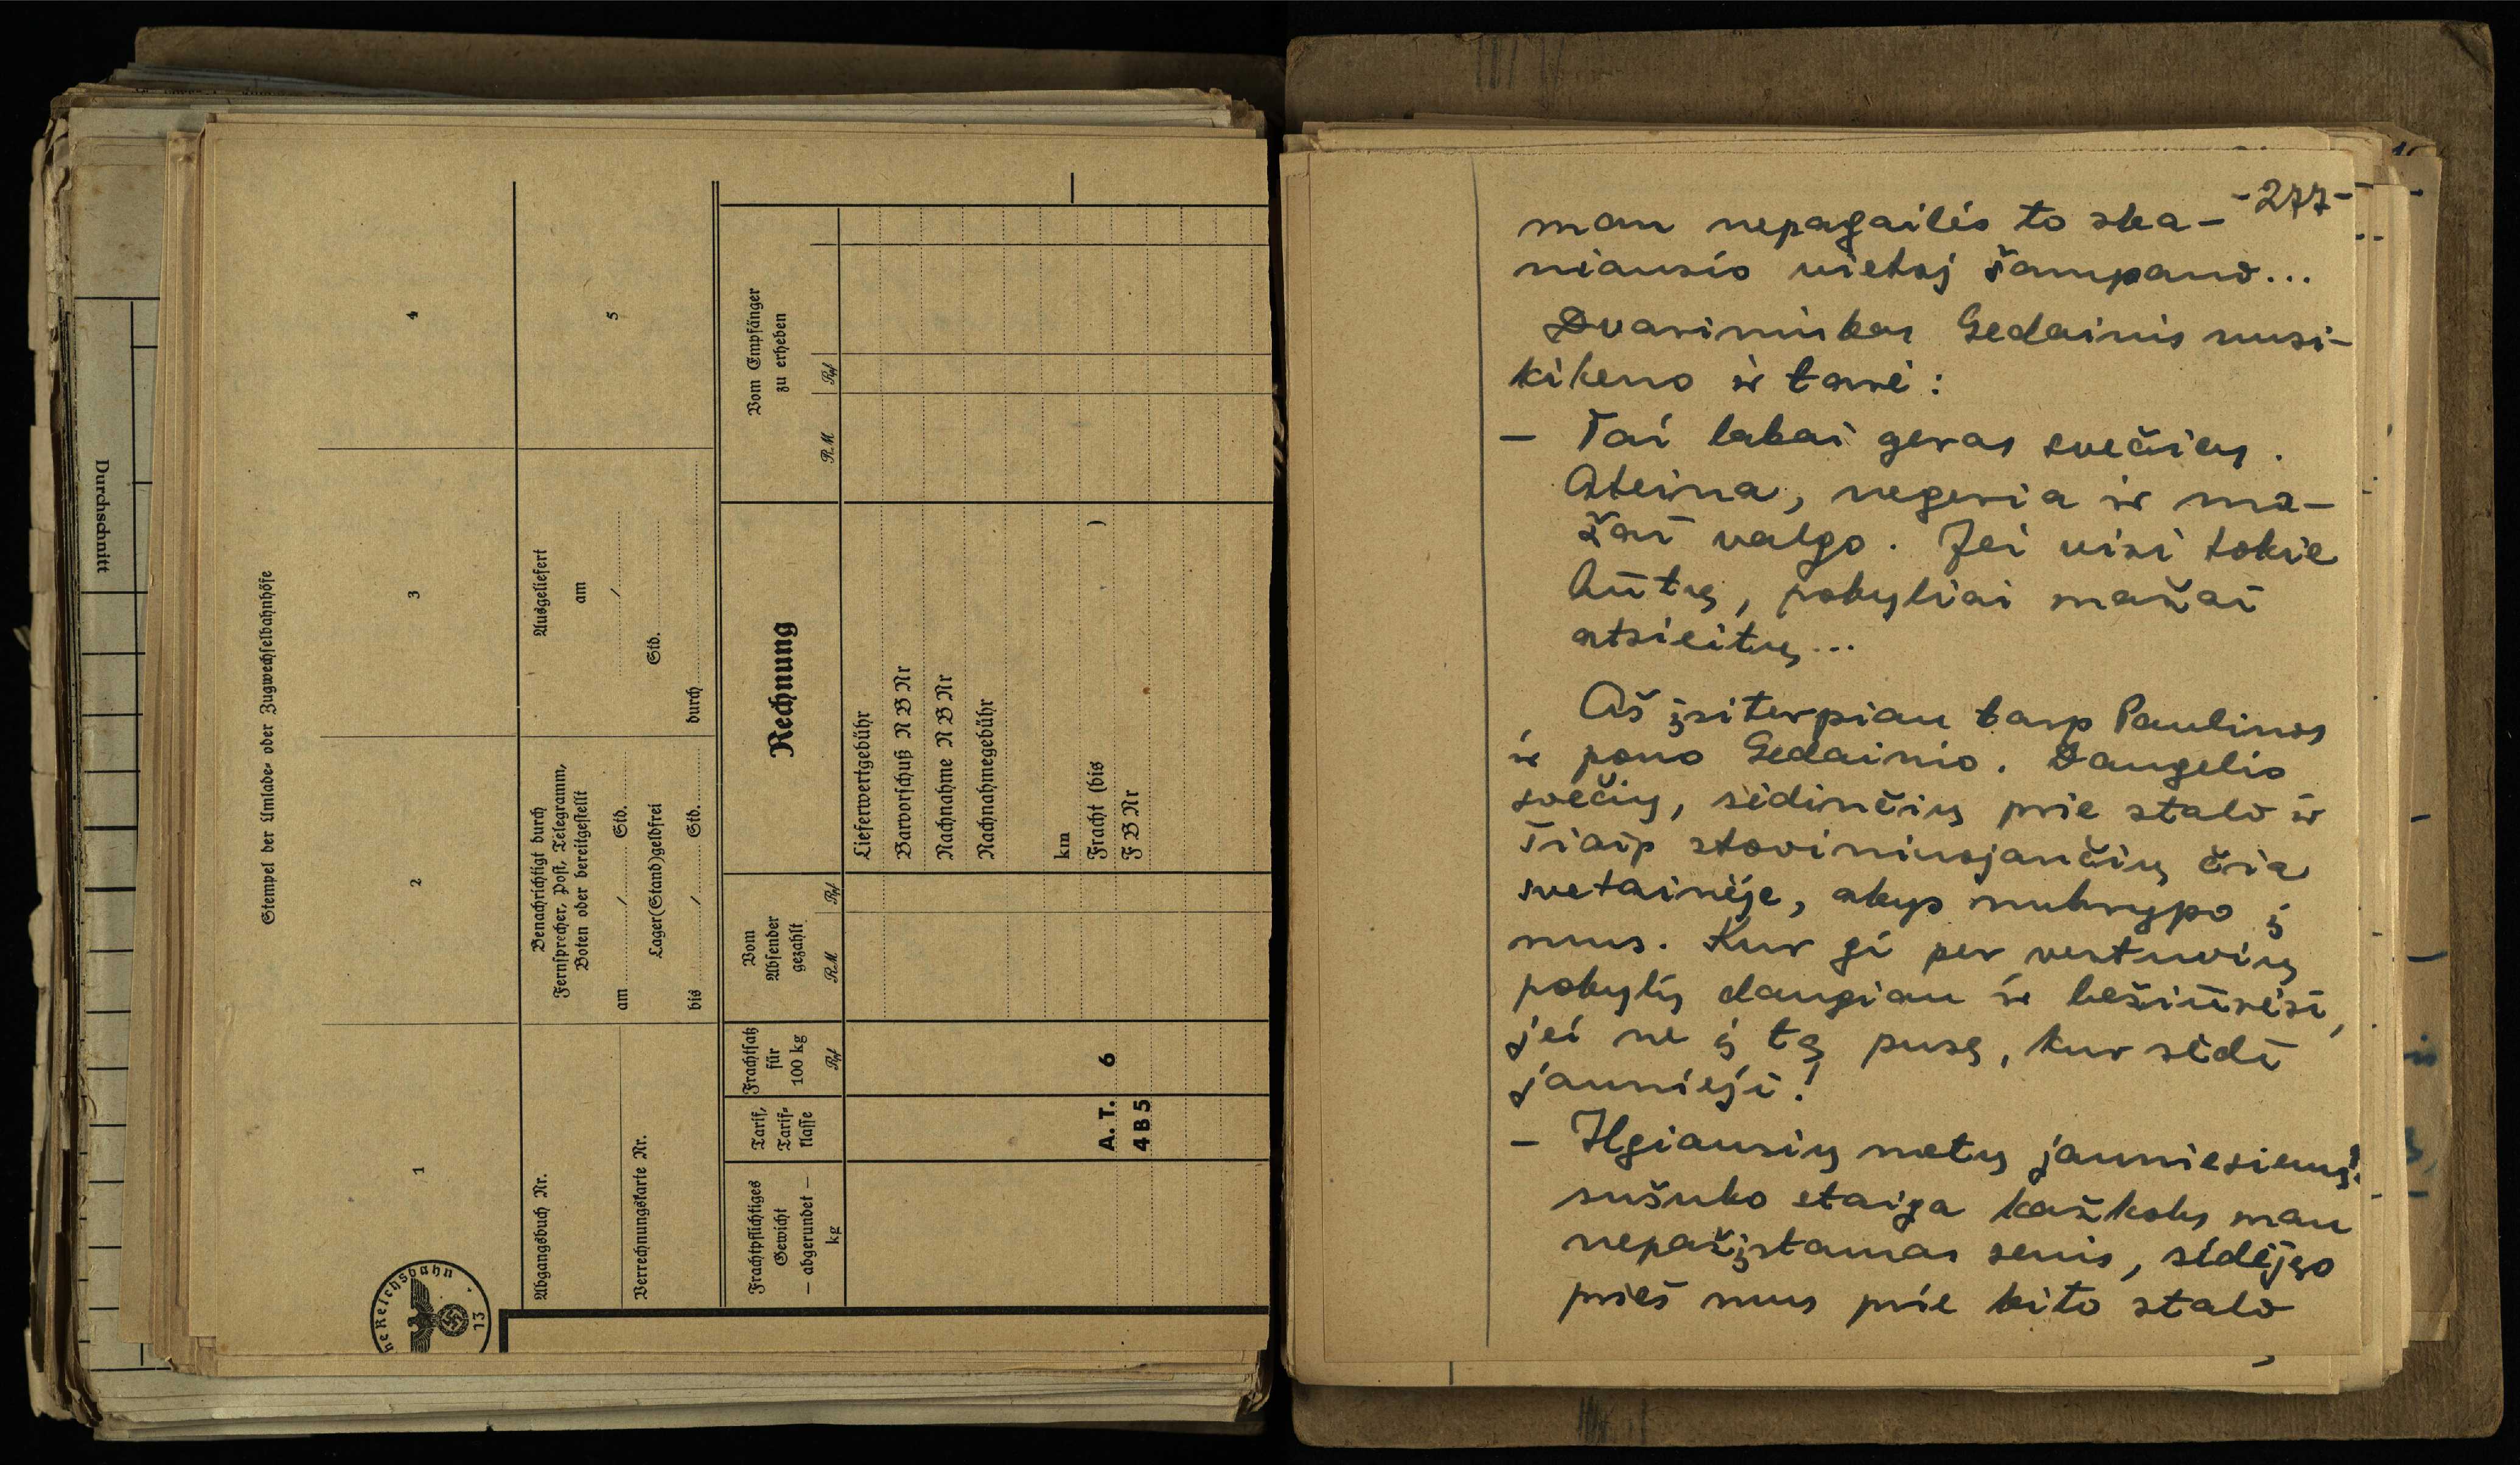 Durchschnitt
Stempel der Umlade- oder Zugwechselbahnhöfe
1
2
3
4
Abgangsbuch Nr.
Verrechnungskarte Nr.
Benachrichtigt durch
Fernsprecher, Post, Telegramm,
Boten oder bereitgestellt
am / Std.
Lager(Stand)geldfrei
bis / Std.
Ausgeliefert
am
/
Std.
durch
5
Frachtpflichtiges
Gewicht
— abgerundet —
kg
Tarif,
Tarif-
klasse
Frachtsatz
für
100 kg
Rpf
Vom
Absender
gezahlt
RM Rpf
Rechnung
Vom Empfänger
zu erheben
RM Rpf
Lieferwertgebühr
Barvorschuß N B Nr
Nachnahme N B Nr
Nachnahmegebühr
km
A. T. 6 Fracht (bis )
4 B 5 F B Nr
ne Reichsbahn
13
-277-
man nepagailės to ska-
niausio vietoj šampano...
Dvarininkas Gedainis nusi-
kikeno ir tarė:
— Tai labai geras svečias.
Ateina, negeria ir ma-
žai valgo. Jei visi tokie
būtų, pobyliai mažai
atsieitų...
Aš įsiterpiau tarp Paulinos
ir pono Gedainio. Daugelio
svečių, sėdinčių prie stalo ir
šiaip stoviniuojančių čia
svetainėje, akys nukrypo į
mus. Kur gi per vestuvių
pobylį daugiau ir bežiūrėsi,
jei ne į tą pusę, kur sėdi
jaunieji!
— Ilgiausių metų jauniesiems!
sušuko staiga kažkoks man
nepažįstamas senis, sėdėjęs
prieš mus prie kito stalo